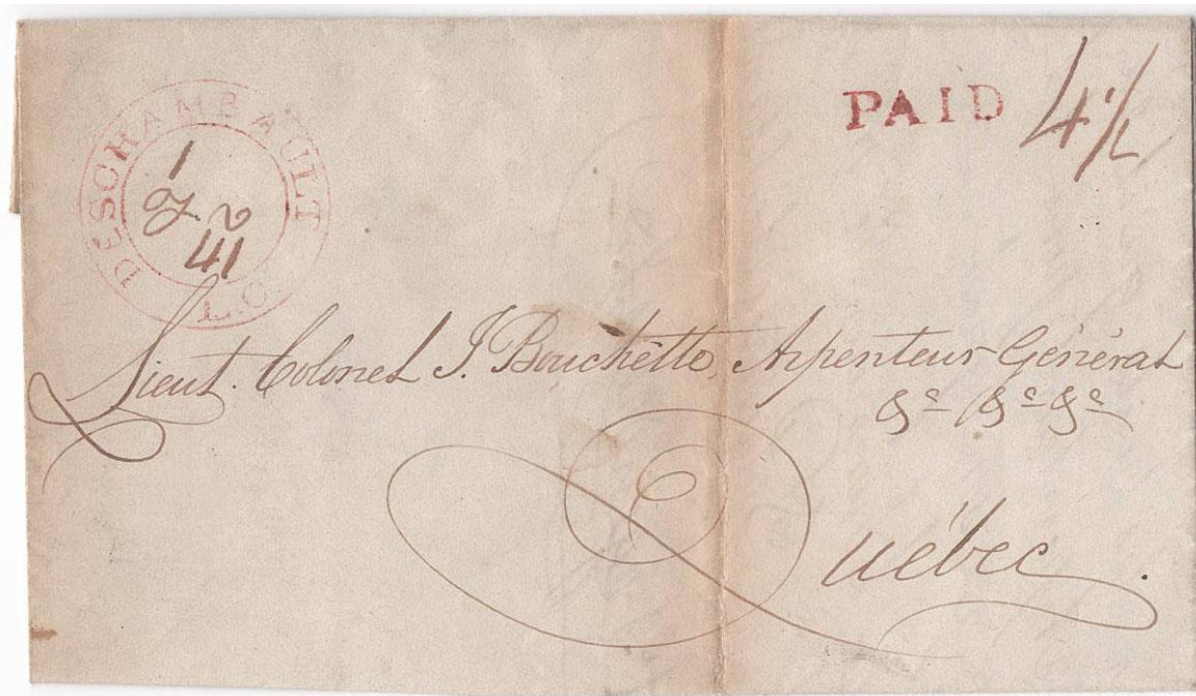 DESCHAMBAULT L.C.
1
41
PAID 4½
Lieut. Colonel J. Bouchette, Arpenteur Général
&c &c &c
Québec.